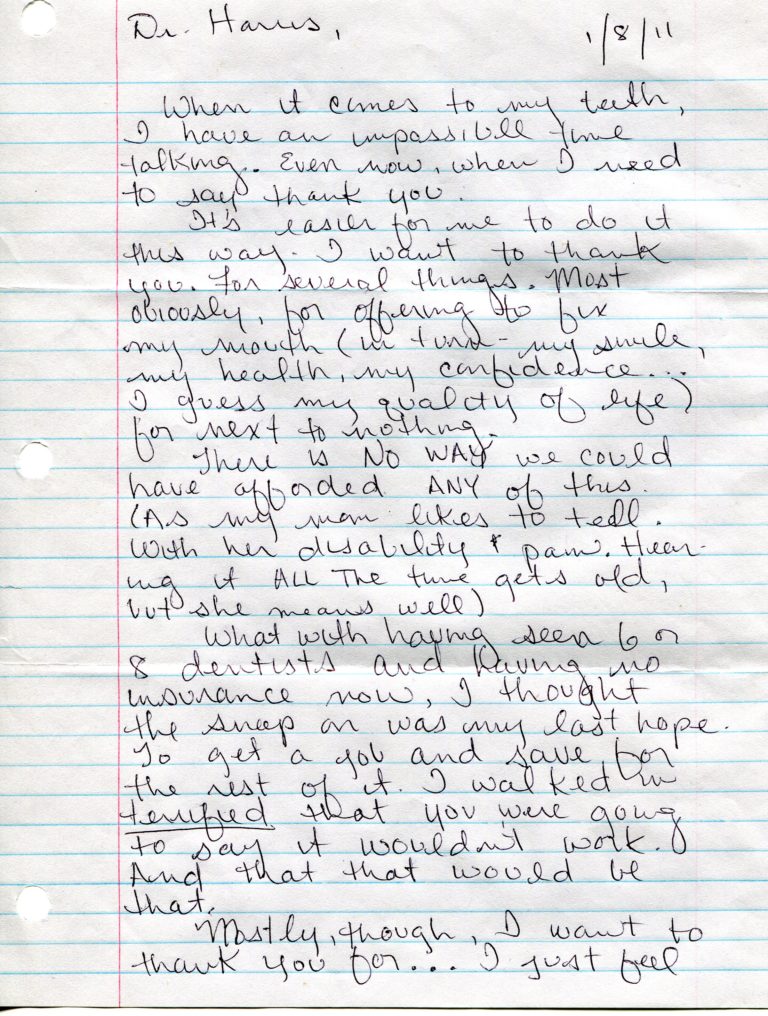 Dr. Harris, 1/8/11
When it comes to my teeth,
I have an impossible time
talking. Even now, when I need
to say thank you.
It's easier for me to do it
this way. I want to thank
you. For several things. Most
obiously, for offering to fix
my mouth (in turn - my smile,
my health, my confidence...
I guess my quality of life)
for next to nothing.
There is NO WAY we could
have afforded ANY of this.
(As my mom likes to tell.
With her disability & pain. Hear-
ing it ALL The time gets old,
but she means well)
What with having seen 6 or
8 dentists and having no
insurance now, I thought
the snap on was my last hope.
To get a job and save for
the rest of it. I walked in
terrified that you were going
to say it wouldn't work.
And that that would be
that.
Mostly, though, I want to
thank you for... I just feel